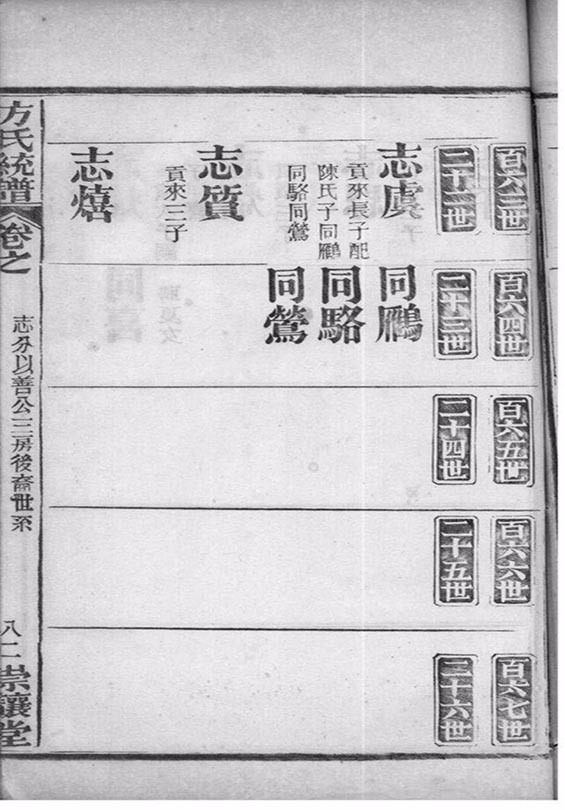 百六三世
百六四世
百六五世
百六六世
百六七世
二十二世
二十三世
二十四世
二十五世
二十六世
志虞
貢來長子配
陳氏子同鵰
同駱同鶯
同鵰
同駱
同鶯
志質
貢來三子
志熺
方氏統譜
卷之
志分以善公三房後裔世系
八二
崇讓堂